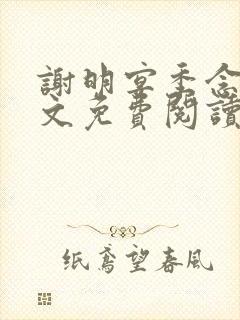 謝明宴季念
文免費閱讀
纸鸢望春风